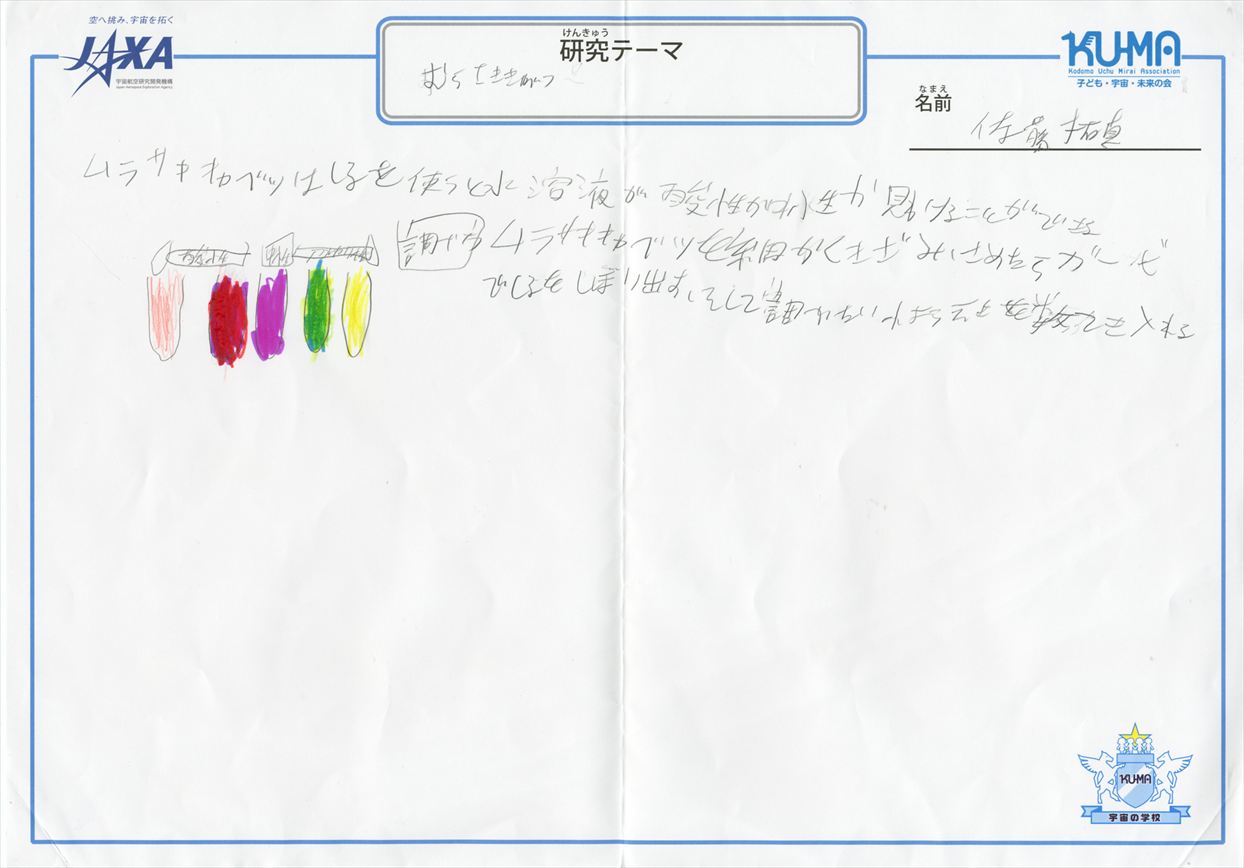 空へ挑み、宇宙を拓く
JAXA
宇宙航空研究開発機構
Japan Aerospace Exploration Agency
けんきゅう
研究テーマ
KU-MA
Kodomo Uchu Mirai Association
子ども・宇宙・未来の会
なまえ
名前
佐藤 拓真
ムラサキキャベツはしるを使うと水溶液が酸性か
見分けることができる
酸性 中性 アルカリ性
調べ方 ムラサキキャベツを細かくきざみ
でしるをしぼり出す。そして調べたい 入れる
KU-MA
宇宙の学校